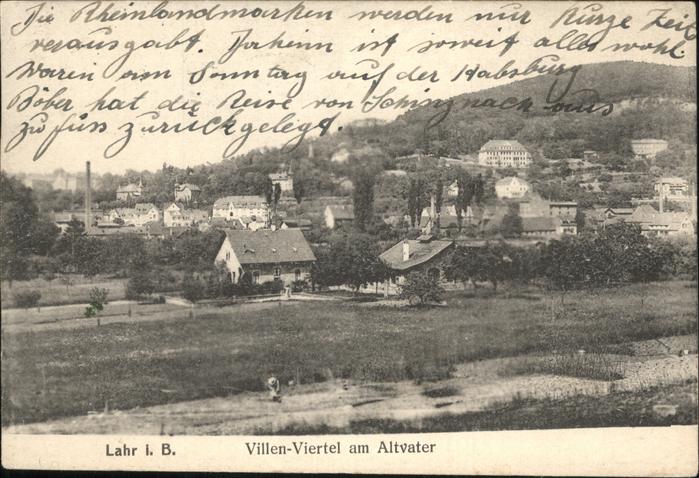 Die Rheinlandmarken werden nur kurze Zeit
verausgabt. Daheim ist soweit alles wohl.
Waren am Sonntag auf der Habsburg
Böber hat die Reise von Schinznach aus
zu fuss zurückgelegt.
Lahr i. B. Villen-Viertel am Altvater